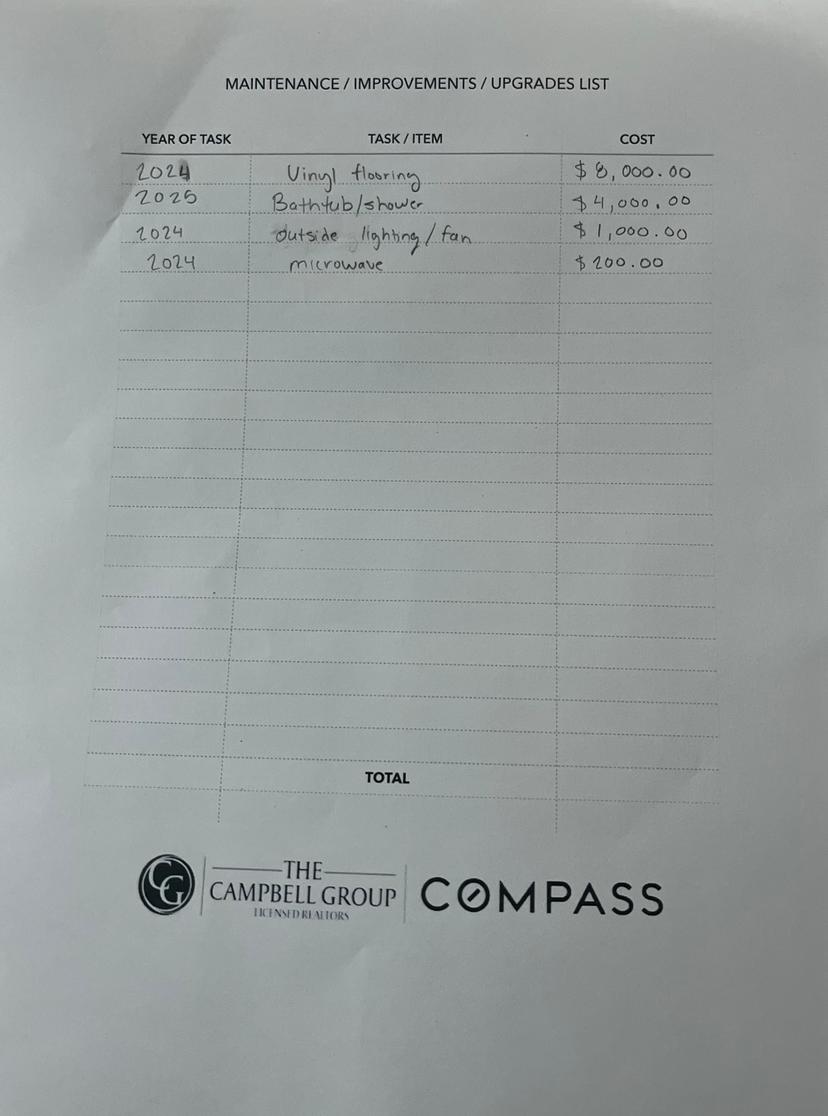 MAINTENANCE / IMPROVEMENTS / UPGRADES LIST
YEAR OF TASK TASK / ITEM COST
2024 Vinyl flooring $ 8,000.00
2025 Bathtub/shower $ 4,000.00
2024 outside lighting / fan $ 1,000.00
2024 microwave $ 200.00
TOTAL
CG THE CAMPBELL GROUP LICENSED REALTORS COMPASS